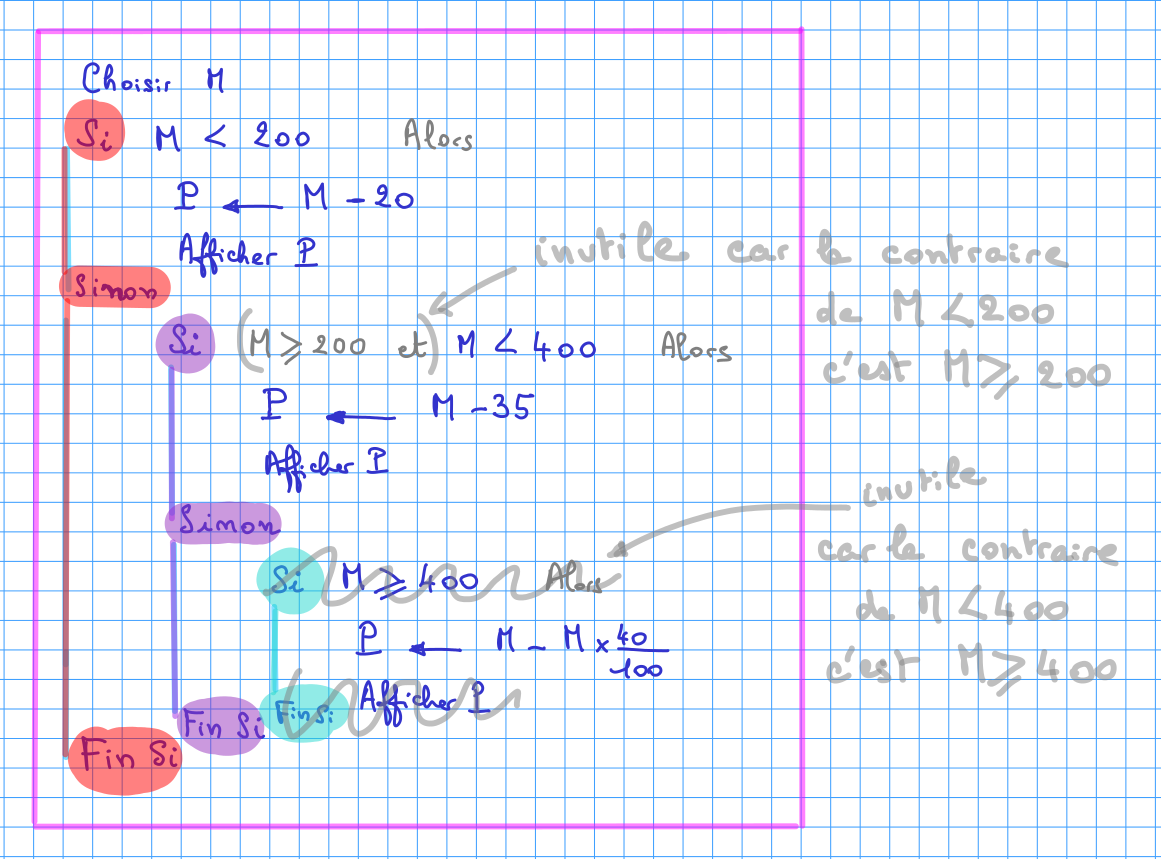 Choisir M
Si M < 200 Alors
P ← M - 20
Afficher P
inutile car le contraire
de M < 200
c'est M ⩾ 200
Sinon
Si (M ⩾ 200 et) M < 400 Alors
P ← M - 35
Afficher P
Sinon
inutile
car le contraire
de M < 400
c'est M ⩾ 400
Si M ⩾ 400 Alors
P ← M - M × 40/100
Afficher P
Fin Si
Fin Si
Fin Si